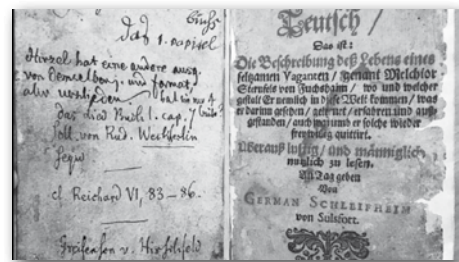 das 1. capitel
Hirzel hat eine andere ausg.
von demselben j. und format,
aber verschieden
das dies Buch 1. cap. 7
von Rud. Weckherlin
cf. Reichard VI, 83–86.
Greifenson v. Hirschfeld
Teutsch /
Das ist:
Die Beschreibung deß Lebens eines
seltzamen Vaganten / genant Melchior
Sternfels von Fuchshaim / wo und welcher
gestalt Er nemlich in diese Welt kommen / was
er darinn gesehen / gelernet / erfahren und auß-
gestanden / auch warumb er solche wieder
freywillig quittirt.
Uberauß lustig / und männiglich
nutzlich zu lesen.
An Tag geben
Von
GERMAN SCHLEIFHEIM
von Sulsfort.